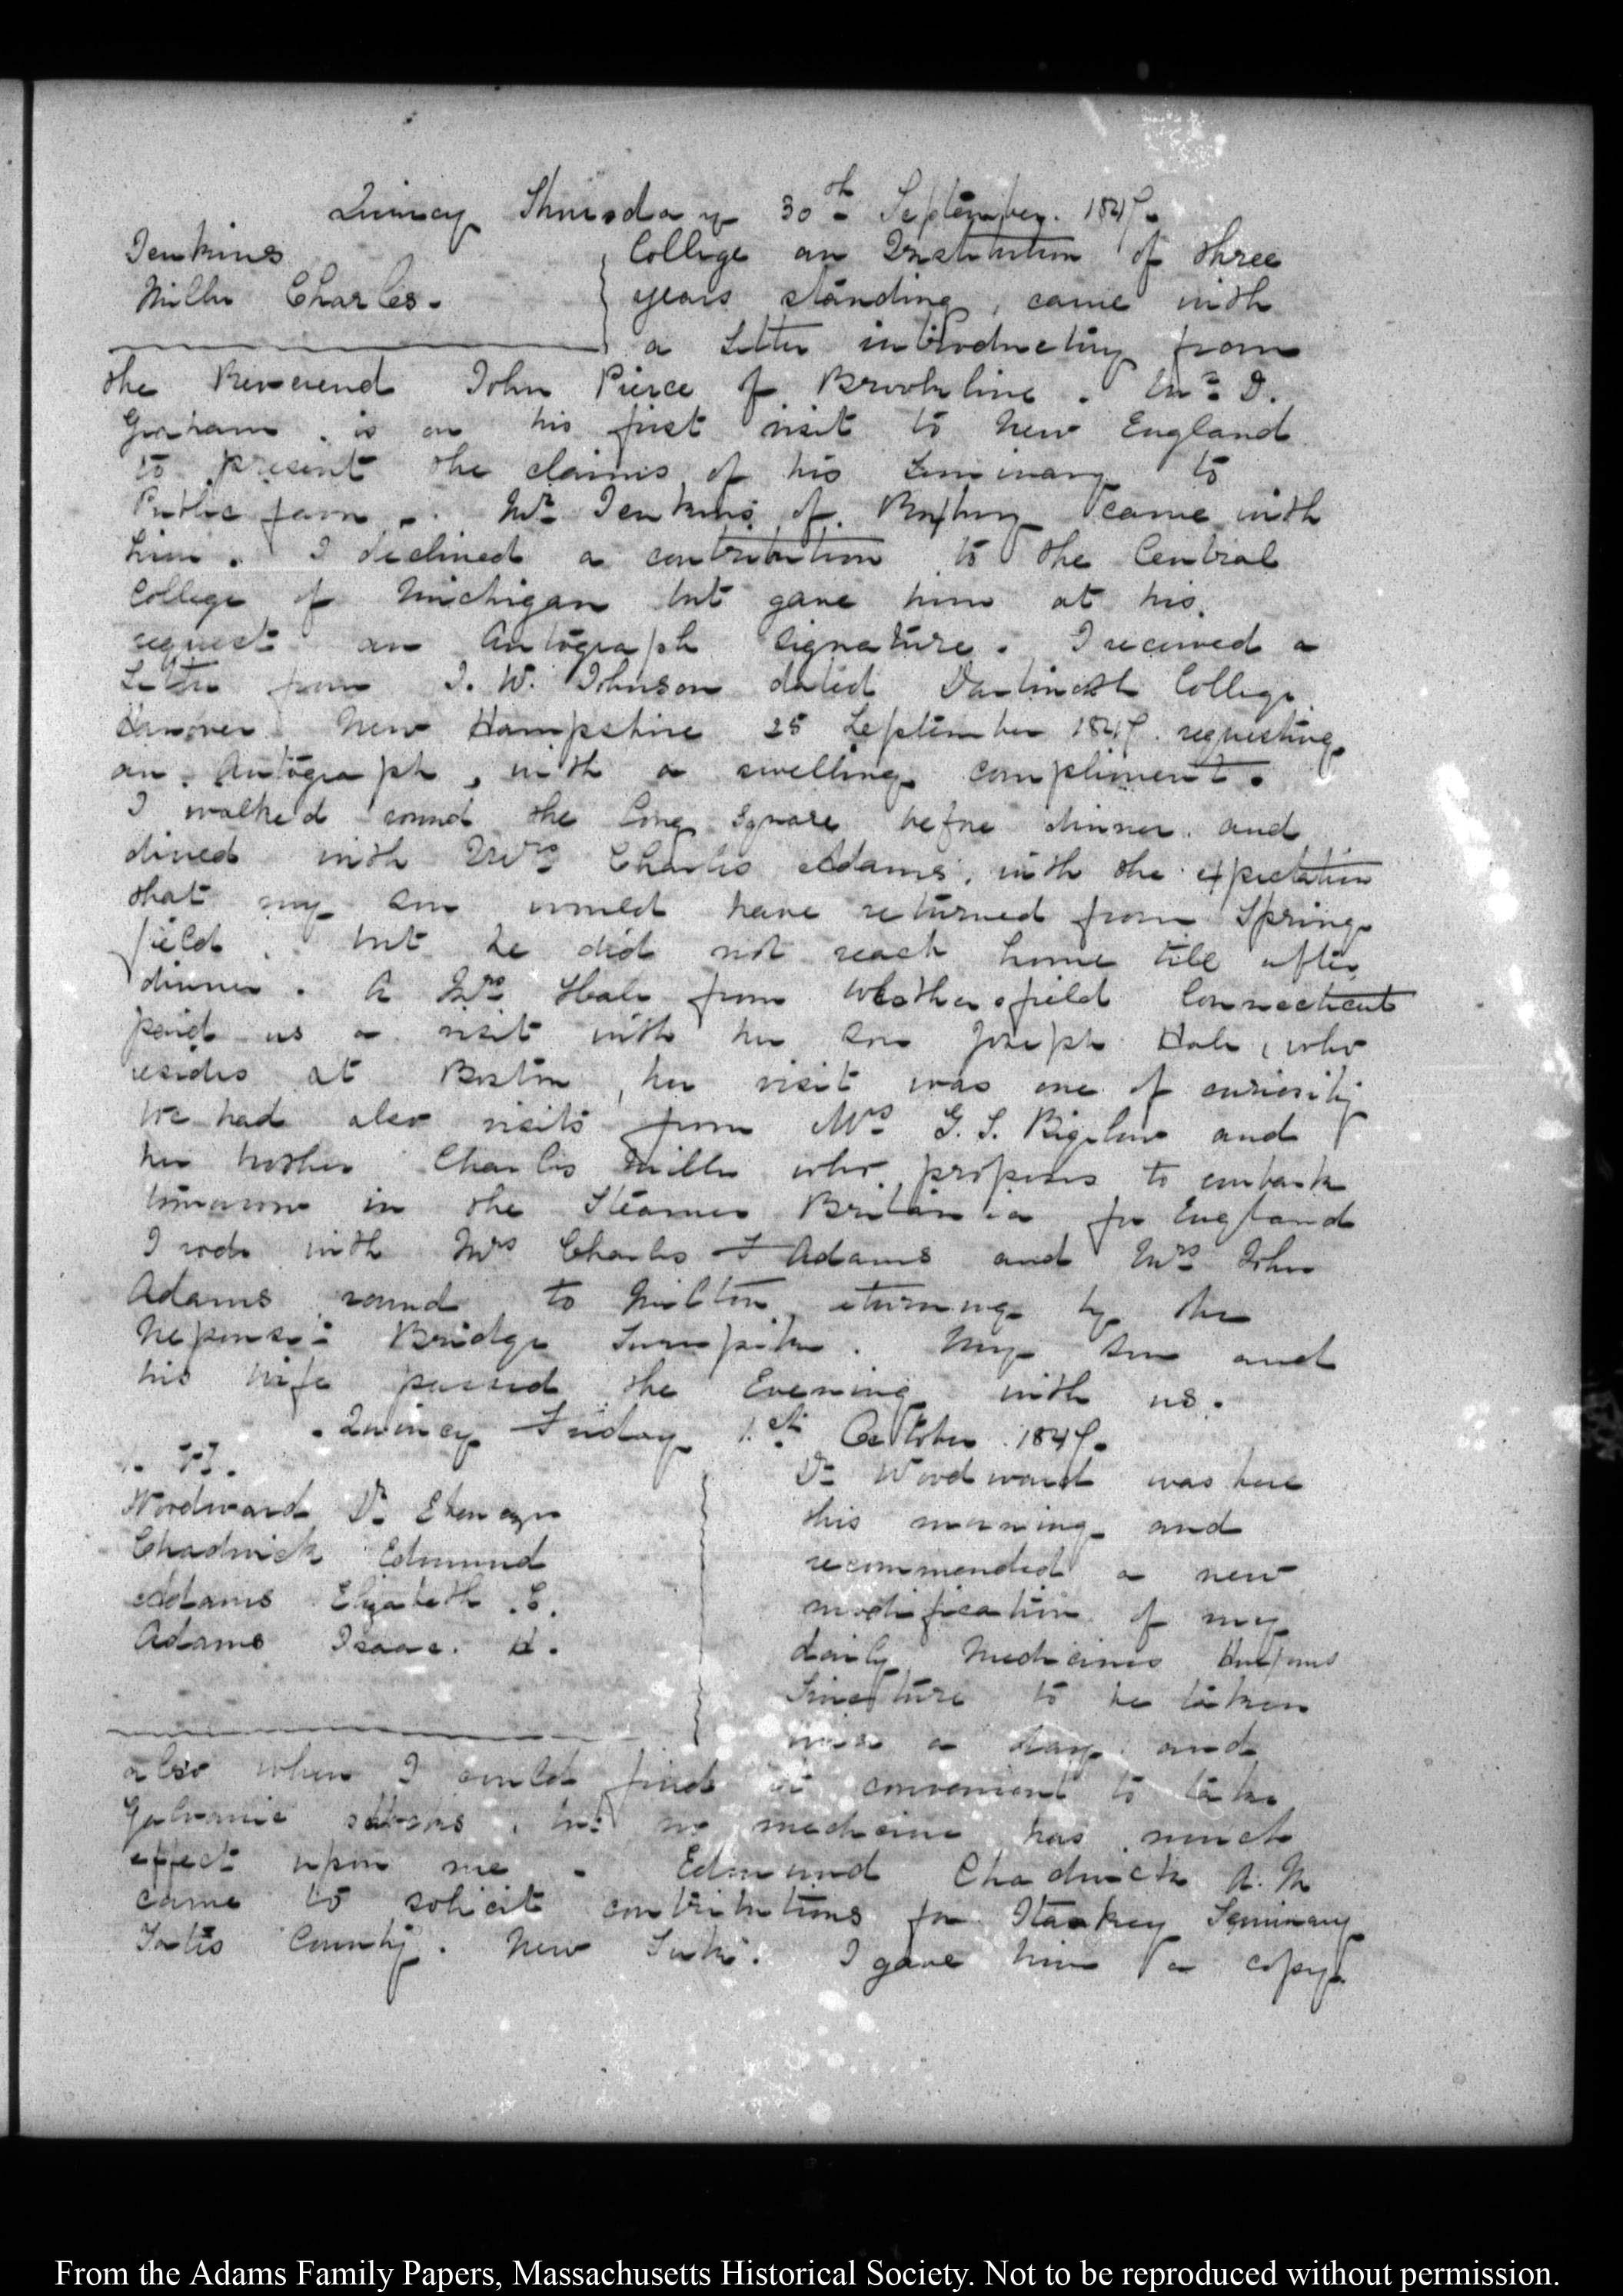 Quincy Thursday 30th September. 1847.
Jenkins
Miller Charles.
College an Institution of three
years standing, came with
a Letter introductory from
the Reverend John Pierce of Brookline. Mr D.
Graham. is on his first visit to New England
to present the claims of his Seminary to
Public favor. Mr Jenkins of Roxbury came with
him. I declined a contribution to the Central
College of Michigan but gave him at his
request an Autograph Signature. I received a
Letter from J. W. Johnson dated Dartmouth College
Hanover New Hampshire 25 September 1847. requesting
an Autograph, with a swelling compliment.
I walked round the long Square before dinner and
dined with Mrs Charles Adams, with the expectation
that my Son would have returned from Spring-
field. but he did not reach home till after
dinner. A Mrs Hale from Weathersfield Connecticut
paid us a visit with her Son Joseph Hale, who
resides at Boston, her visit was one of curiosity
We had also visits from Mrs G. T. Bigelow and
her brother Charles Miller who proposes to embark
tomorrow in the Steamer Britania for England
I rode with Mrs Charles F Adams and Mrs John
Adams round to Milton returning by the
Neponset Bridge Turnpike. My Son and
his wife passed the Evening with us.
Quincy Friday 1st October 1847.
Woodward Dr Ebenezer
Chadwick Edmund
Adams Elizabeth C.
Adams Isaac. H.
Dr Woodward was here
this morning and
recommended a new
modification of my
daily Medicines
Tincture to be taken
a day and
also when I could find it convenient to take
Galvanic shocks. but no medicine has much
effect upon me. Edmund Chadwick A.M
came to solicit contributions for Starkey Seminary
Yates County. New York. I gave him a copy
From the Adams Family Papers, Massachusetts Historical Society. Not to be reproduced without permission.